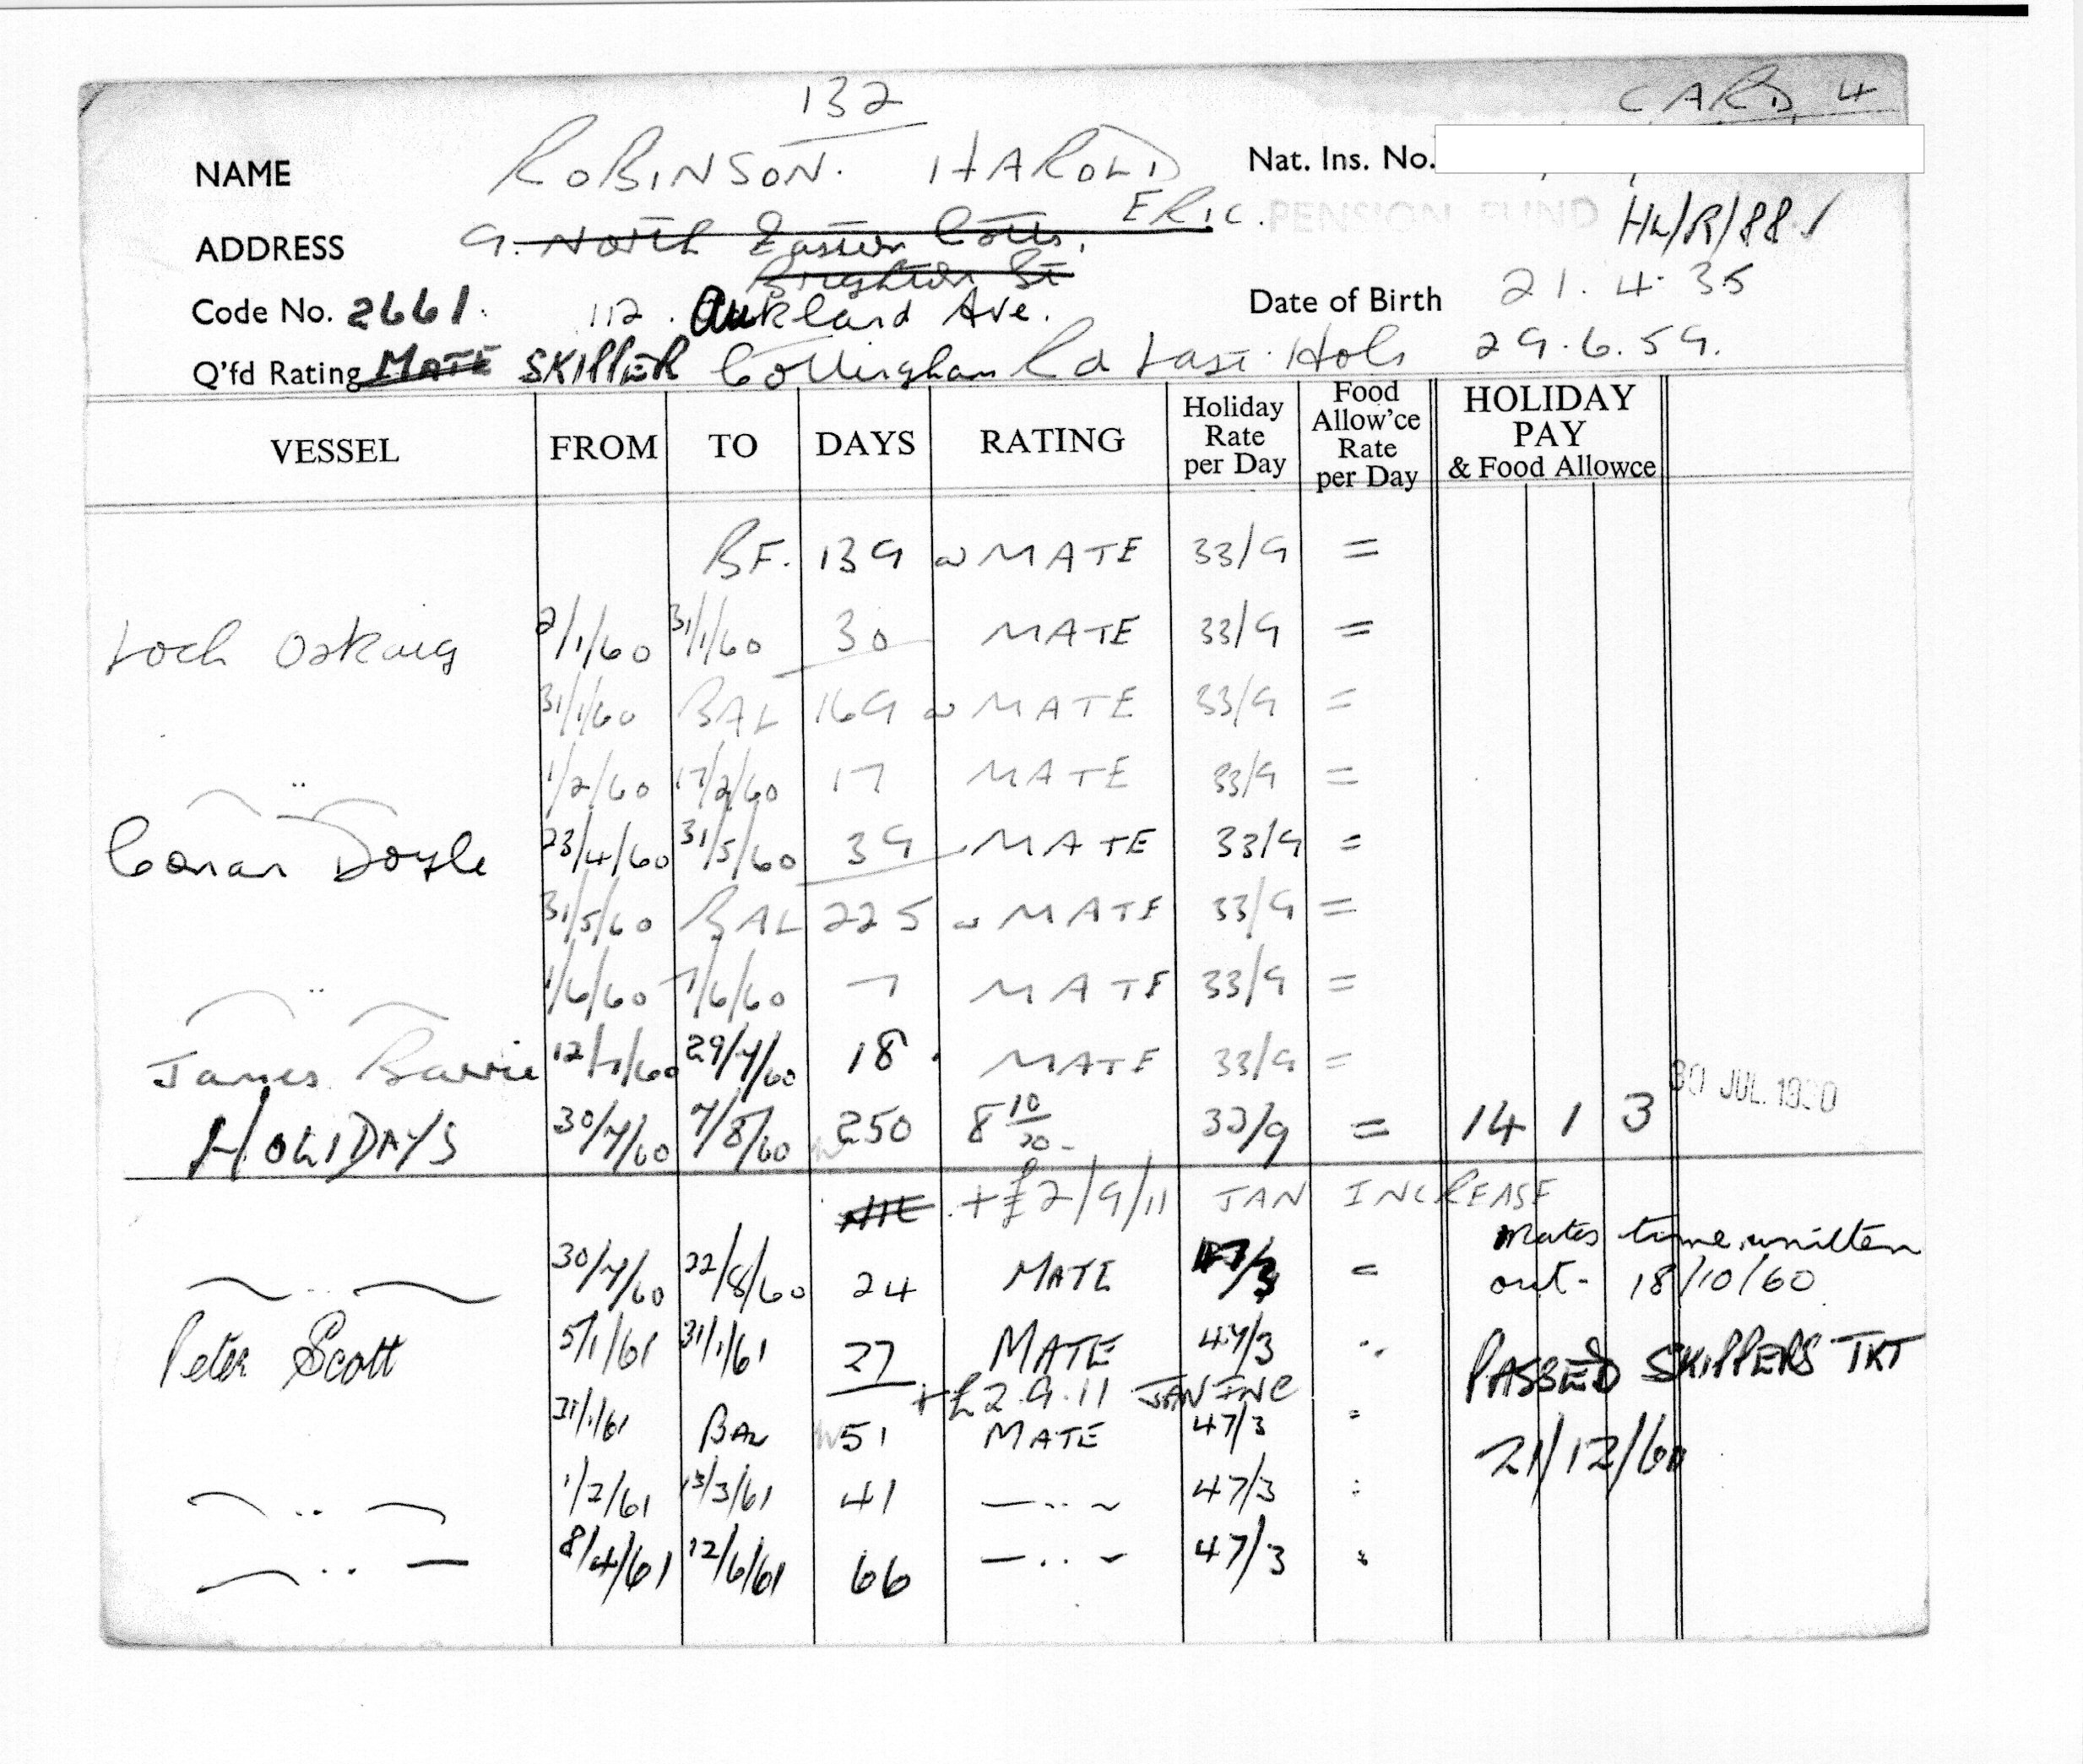 132
CARD 4
NAME ROBINSON. HAROLD Nat. Ins. No.
ERIC. PENSION FUND HL/R/88
ADDRESS 9. North Eastern Cotts,
Brighton St
Code No. 2661. 112. Aukland Ave. Date of Birth 21.4.35
Q'fd Rating MATE SKIPPER Cottingham Rd Last Hols 29.6.59.
VESSEL FROM TO DAYS RATING Holiday Rate per Day Food Allow'ce Rate per Day HOLIDAY PAY & Food Allowce
BF. 139 MATE 33/9 =
Loch Oskaig 2/1/60 31/1/60 30 MATE 33/9 =
31/1/60 BAL 169 MATE 33/9 =
" 1/2/60 17/2/60 17 MATE 33/9 =
Conan Doyle 23/4/60 31/5/60 39 MATE 33/9 =
31/5/60 BAL 225 MATE 33/9 =
" 1/6/60 7/6/60 7 MATE 33/9 =
James Barrie 12/7/60 29/7/60 18 MATE 33/9 =
HOLIDAYS 30/7/60 7/8/60 250 8 10/20 33/9 = 14 1 3 30 JUL. 1960
NIL + £2/9/11 JAN INCREASE
" 30/7/60 22/8/60 24 MATE 47/3 = Mates time written
out - 18/10/60
Peter Scott 5/1/61 31/1/61 27 MATE 47/3 " PASSED SKIPPERS TKT
+ £2.9.11 JAN INC
31/1/61 BAL 51 MATE 47/3 = 21/12/60
" 1/2/61 13/3/61 41 " 47/3 "
" 8/4/61 12/6/61 66 " 47/3 "